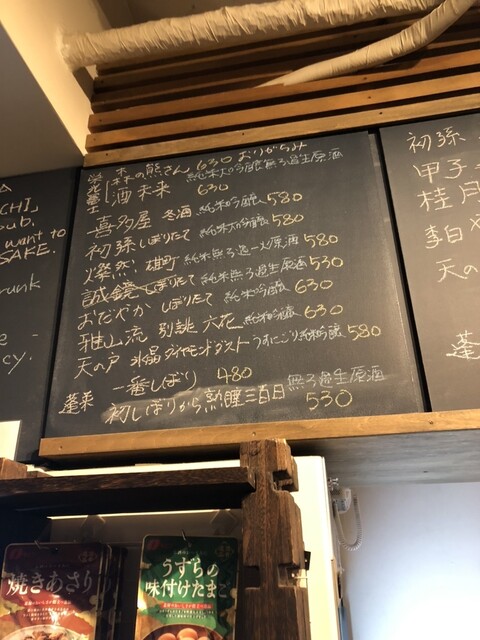 CHI」
pub.
want to
SAKE.
runk
cy.
栄光冨士
森の熊さん 630 おりがらみ
酒未来 純米大吟醸無ろ過生原酒
630
喜多屋 冬酒 純米吟醸 580
初孫 しぼりたて 純米大吟醸 580
燦然 雄町 純米無ろ過一火原酒 580
誠鏡 しぼりたて 純米無ろ過生原酒 530
おだやか しぼりたて 純米吟醸 630
雅山流 別誂 六花 純米吟醸 630
天の戸 氷晶 ダイヤモンドダスト うすにごり純米吟醸 580
蓬莱
一番しぼり 480
初しぼりから熟睡三百日 無ろ過生原酒
530
初孫
甲子
桂月
李白
天の
蓬
焼きあさり
うずらの
味付けたまご